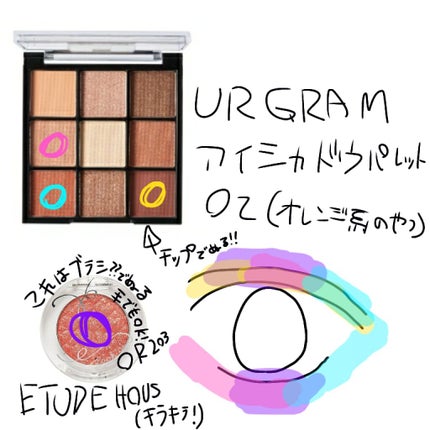 UR GRAM
アイシャドウパレット
02(オレンジ系のやつ)
チップでぬる!!
これはブラシ??でぬる
手でもOK!
OR203
ETUDE HOUS
(キラキラ!)